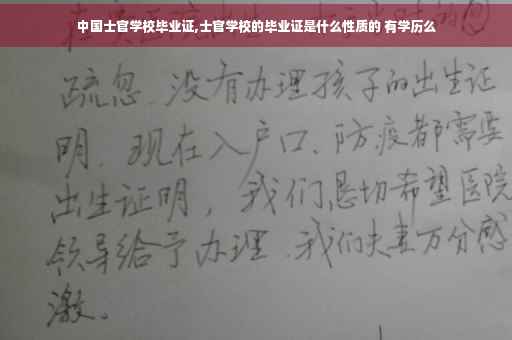 中国士官学校毕业证,士官学校的毕业证是什么性质的 有学历么
疏忽、没有办理孩子的出生证
明、现在入户口、防疫都需要
出生证明，我们恳切希望医院
领导给予办理、我们夫妻万分感
激。